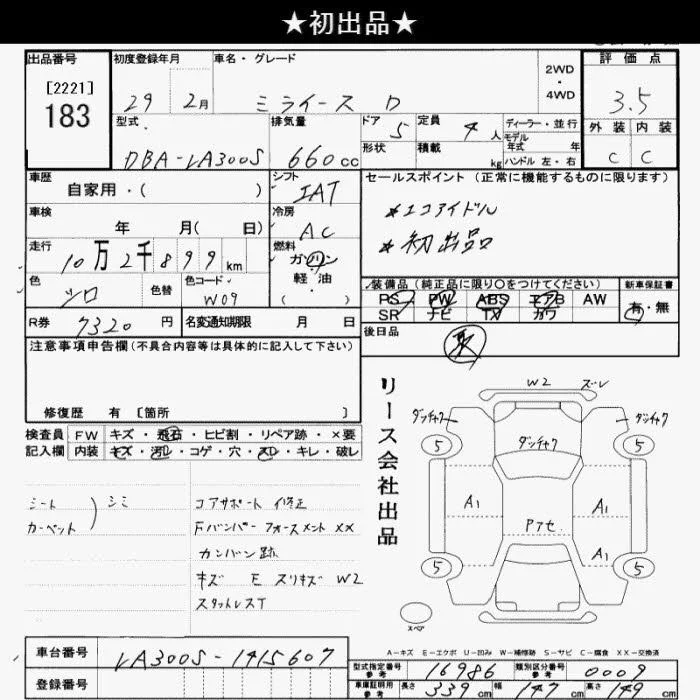 ★初出品★
出品番号
[2221]
183
初度登録年月
29 2月
車名・グレード
ミライース D
2WD
・
4WD
評価点
3.5
外装 内装
C C
型式
DBA-LA300S
排気量
660cc
ドア
5
定員
4人
ディーラー・並行
モデル
年式 年
ハンドル 左・右
形状
積載
kg
車歴
自家用・( )
シフト
IAT
セールスポイント (正常に機能するものに限ります)
*エコアイドル
*初出品
車検
年 月( 日)
冷房
AC
走行
10万2千899km
燃料
ガソリン
軽・油
( )
色
シロ
色替
色コード
W09
装備品 (純正品に限り○をつけてください)
PS PW ABS エアB AW
SR ナビ TV カワ
新車保証書
有・無
R券
7320円
名変通知期限 月 日
後日品
注意事項申告欄 (不具合内容等は具体的に記入して下さい)
修復歴 有 [箇所 ]
検査員
記入欄
FW キズ・飛石・ヒビ割・リペア跡・×要
内装 キズ・汚レ・コゲ・穴・スレ・キレ・破レ
シート
カーペット
シミ
コアサポート 修正
Fバンパー フォースメント XX
カンバン跡
キズ E スリキズ W2
スタットレスT
リース会社出品
W2 ズレ
ダッチャク
ダッチャク
ダッチャク
5 5
A1 A1
Pアセ
A1
5 5
スペア
A-キズ E-エクボ U-凹み W-補修跡 S-サビ C-腐食 XX-交換済
車台番号
LA300S-1415607
登録番号
型式指定番号
参考
16986
類別区分番号
参考
0009
車庫証明用
参考
長さ 339cm 幅 147cm 高さ 149cm